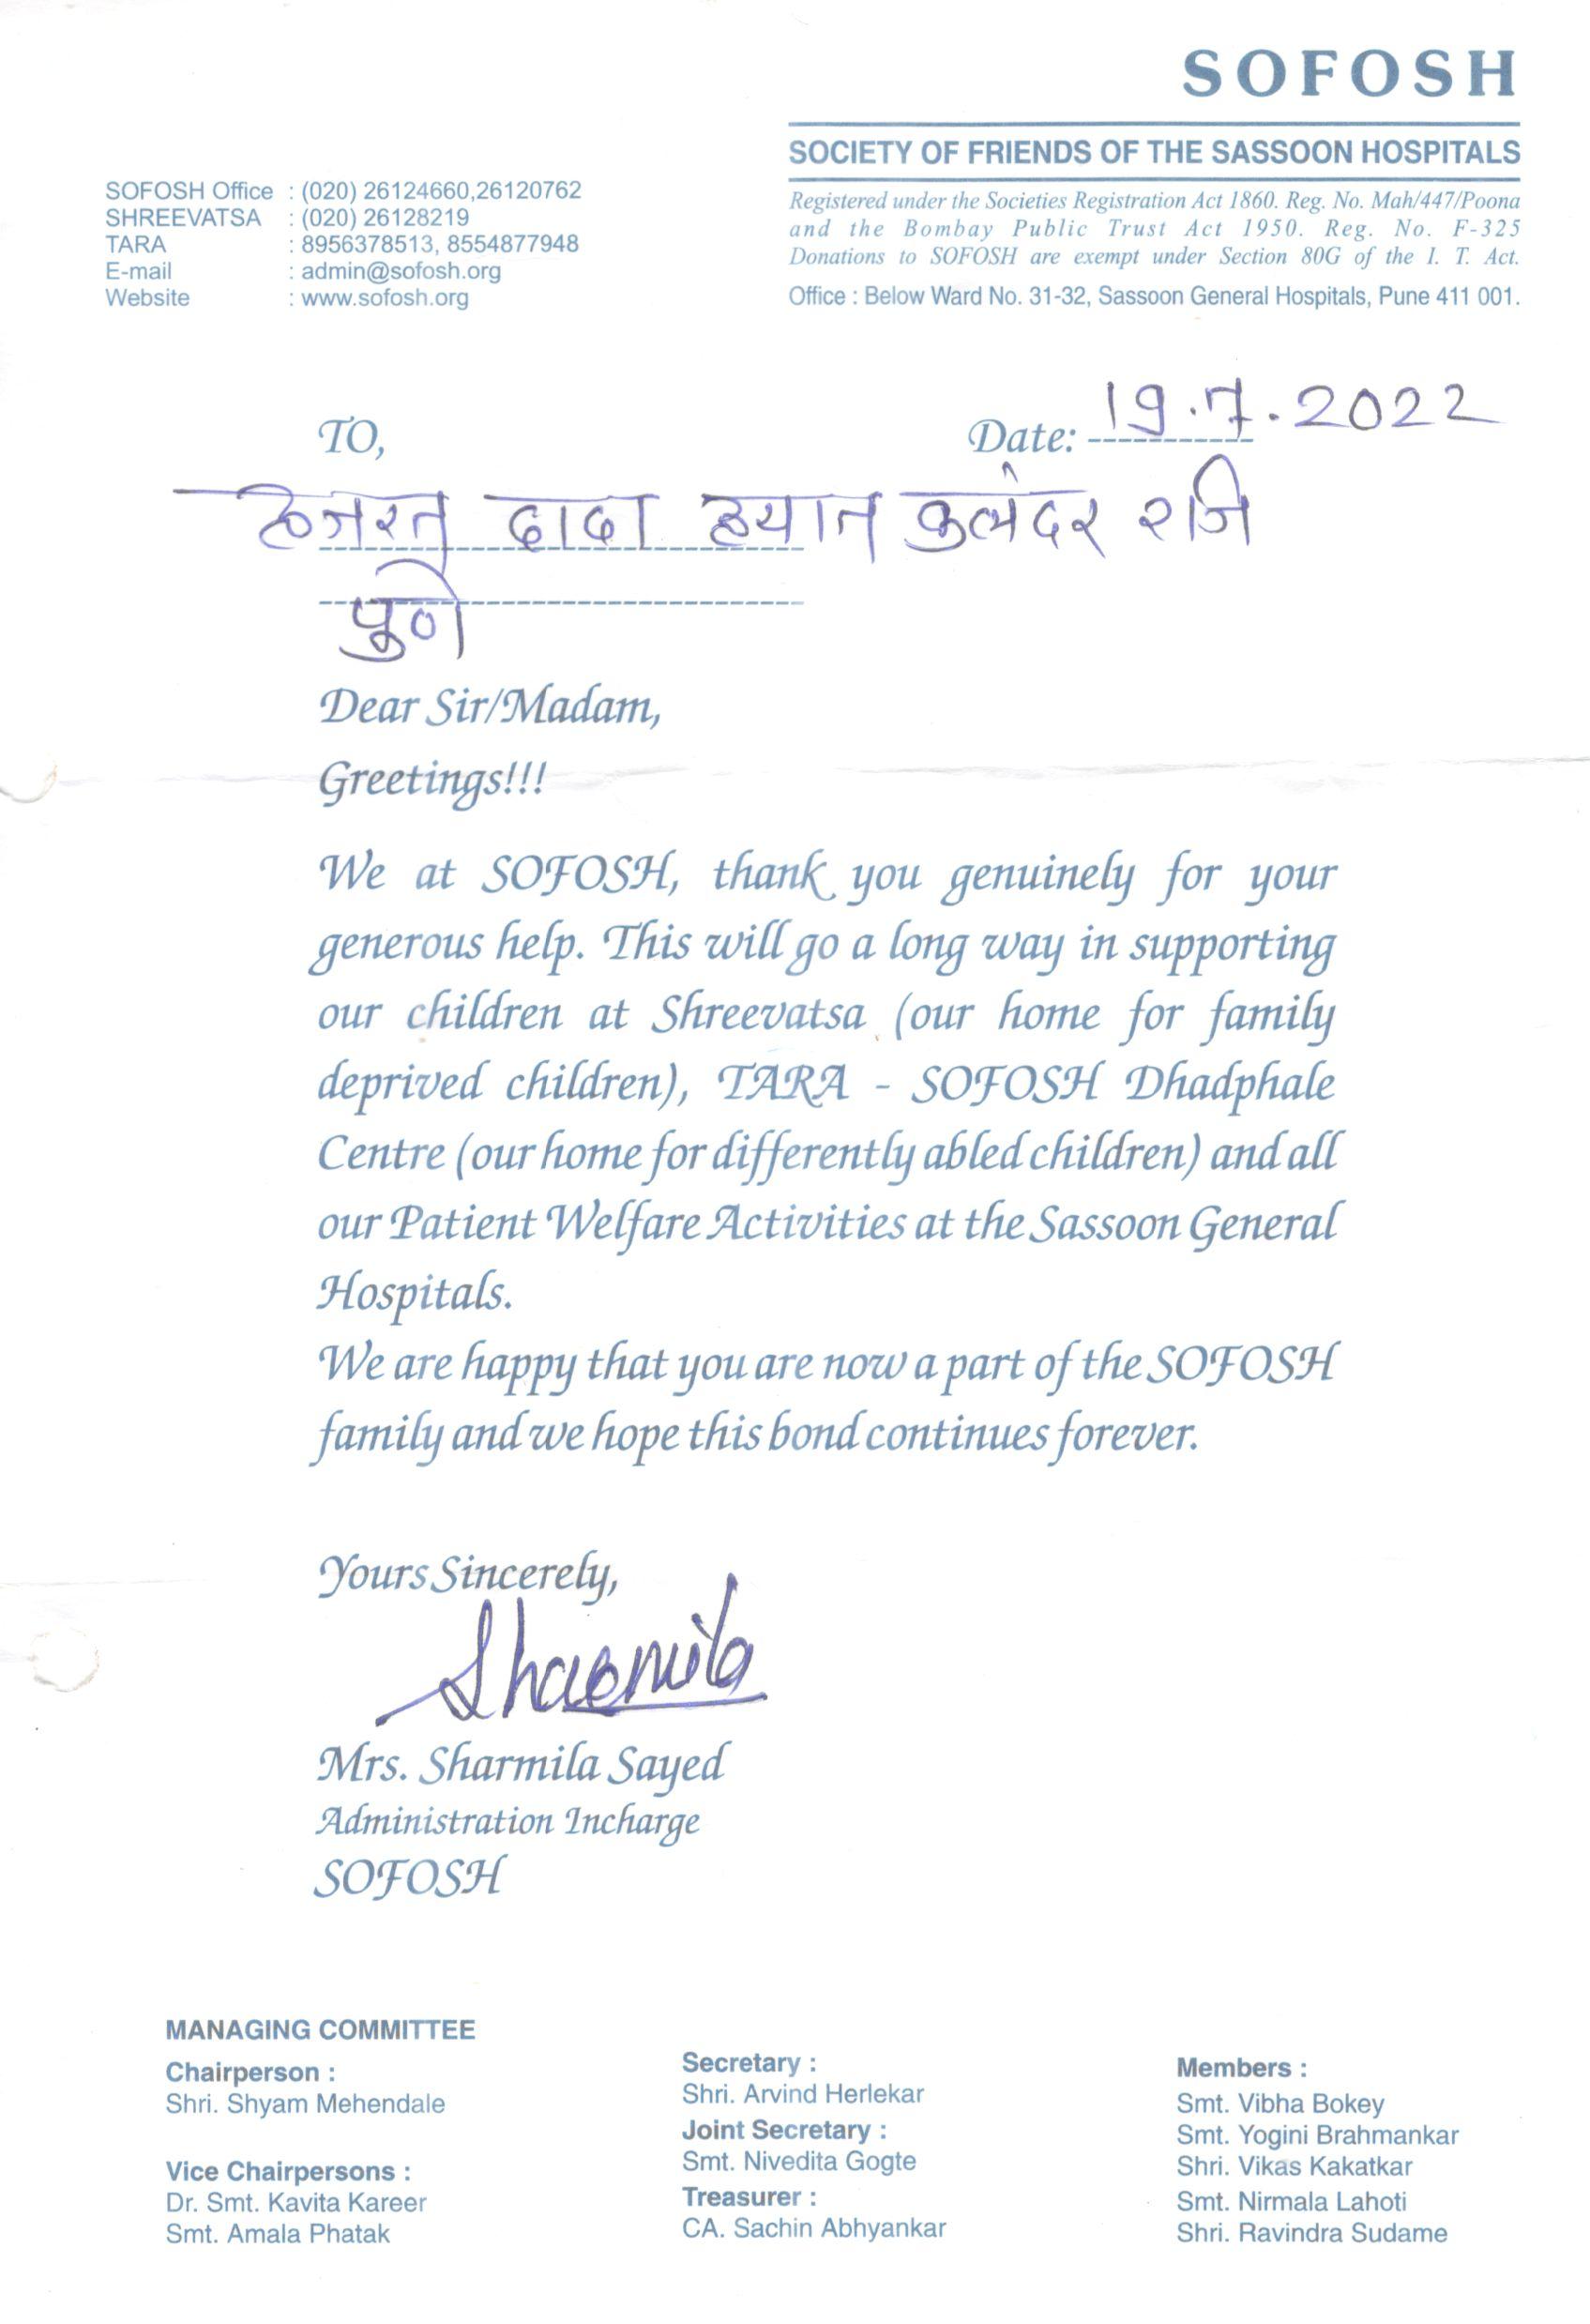 SOFOSH
SOCIETY OF FRIENDS OF THE SASSOON HOSPITALS
Registered under the Societies Registration Act 1860. Reg. No. Mah/447/Poona
and the Bombay Public Trust Act 1950. Reg. No. F-325
Donations to SOFOSH are exempt under Section 80G of the I. T. Act.
Office : Below Ward No. 31-32, Sassoon General Hospitals, Pune 411 001.
SOFOSH Office : (020) 26124660,26120762
SHREEVATSA : (020) 26128219
TARA : 8956378513, 8554877948
E-mail : admin@sofosh.org
Website : www.sofosh.org
TO,
Date: 19.7.2022
हजरत दादा हयात कलंदर
पुणे
Dear Sir/Madam,
Greetings!!!
We at SOFOSH, thank you genuinely for your
generous help. This will go a long way in supporting
our children at Shreevatsa (our home for family
deprived children), TARA - SOFOSH Dhadphale
Centre (our home for differently abled children) and all
our Patient Welfare Activities at the Sassoon General
Hospitals.
We are happy that you are now a part of the SOFOSH
family and we hope this bond continues forever.
Yours Sincerely,
Sharmila
Mrs. Sharmila Sayed
Administration Incharge
SOFOSH
MANAGING COMMITTEE
Chairperson :
Shri. Shyam Mehendale
Vice Chairpersons :
Dr. Smt. Kavita Kareer
Smt. Amala Phatak
Secretary :
Shri. Arvind Herlekar
Joint Secretary :
Smt. Nivedita Gogte
Treasurer :
CA. Sachin Abhyankar
Members :
Smt. Vibha Bokey
Smt. Yogini Brahmankar
Shri. Vikas Kakatkar
Smt. Nirmala Lahoti
Shri. Ravindra Sudame